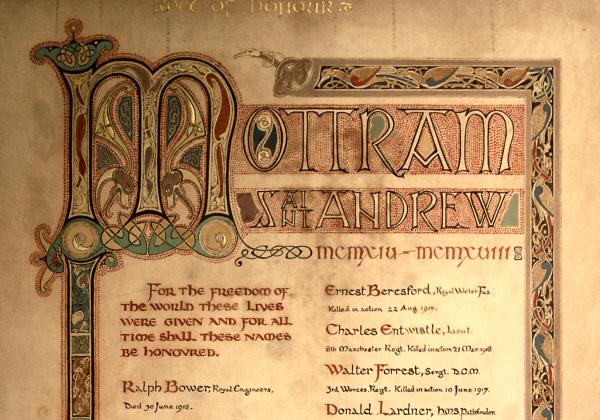 Roll of Honour
MOTTRAM
SAINT ANDREW
mcmxiv – mcmxviiii
For the freedom of
the world these lives
were given and for all
time shall these names
be honoured.
Ralph Bower, Royal Engineers,
Died 30 June 1918.
Ernest Beresford, Royal Welsh Fus.
Killed in action 22 Aug 1917.
Charles Entwistle, Lieut.
8th Manchester Regt. Killed in action 21 Mar 1918.
Walter Forrest, Sergt. D.C.M.
3rd Worces. Regt. Killed in action 10 June 1917.
Donald Lardner, H.M.S. Pathfinder.